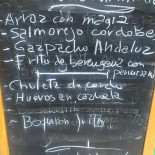 - Arroz con magra
- Salmorejo cordobe
- Gazpacho Andaluz
- Frito de berengena con
- Chuleta de cerdo
- Huevos en cazuela
- Boquerón frito